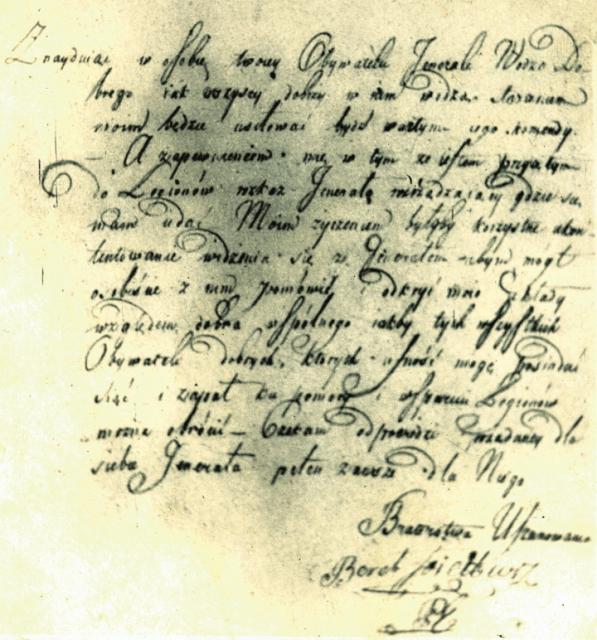 Znayduiąc w osobie twoiey Obywatelu Jenerale Wodza Do-
brego iak wszyscy dobrzy w nim widzą staraniem
moim będzie usiłować bydź wartym iego komendy.
— A zapewnieniem mię w tym że iestem przyiętym
do Legionów rozkaz Jenerała gdzie się
mam udać Moim życzeniem byłoby korzystne ukon-
tentowanie widzenia się z Jenerałem abym mógł
osobiście z nim pomówił, i odkryć moie Układy
względem dobra wspólnego iakby tych wszystkich
Obywateli dobrych, których ufność mogę posiadać
i zapał ku pomocy i wsparciu Legionów
można obrócić — Czekam odpowiedzi dla
siebie Jenerała pełen zawsze dla Niego
Braterstwa Uszanowania
Berek